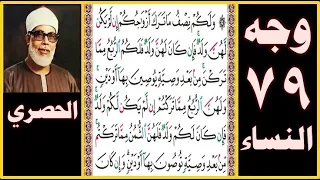 وجه
٧٩
النساء
وَلَكُمْ نِصْفُ مَا تَرَكَ أَزْوَاجُكُمْ إِن لَّمْ يَكُن
لَّهُنَّ وَلَدٌ فَإِن كَانَ لَهُنَّ وَلَدٌ فَلَكُمُ الرُّبُعُ مِمَّا
تَرَكْنَ مِن بَعْدِ وَصِيَّةٍ يُوصِينَ بِهَا أَوْ دَيْنٍ
وَلَهُنَّ الرُّبُعُ مِمَّا تَرَكْتُمْ إِن لَّمْ يَكُن لَّكُمْ وَلَدٌ
فَإِن كَانَ لَكُمْ وَلَدٌ فَلَهُنَّ الثُّمُنُ مِمَّا تَرَكْتُم
مِّن بَعْدِ وَصِيَّةٍ تُوصُونَ بِهَا أَوْ دَيْنٍ وَإِن كَانَ
الحصري